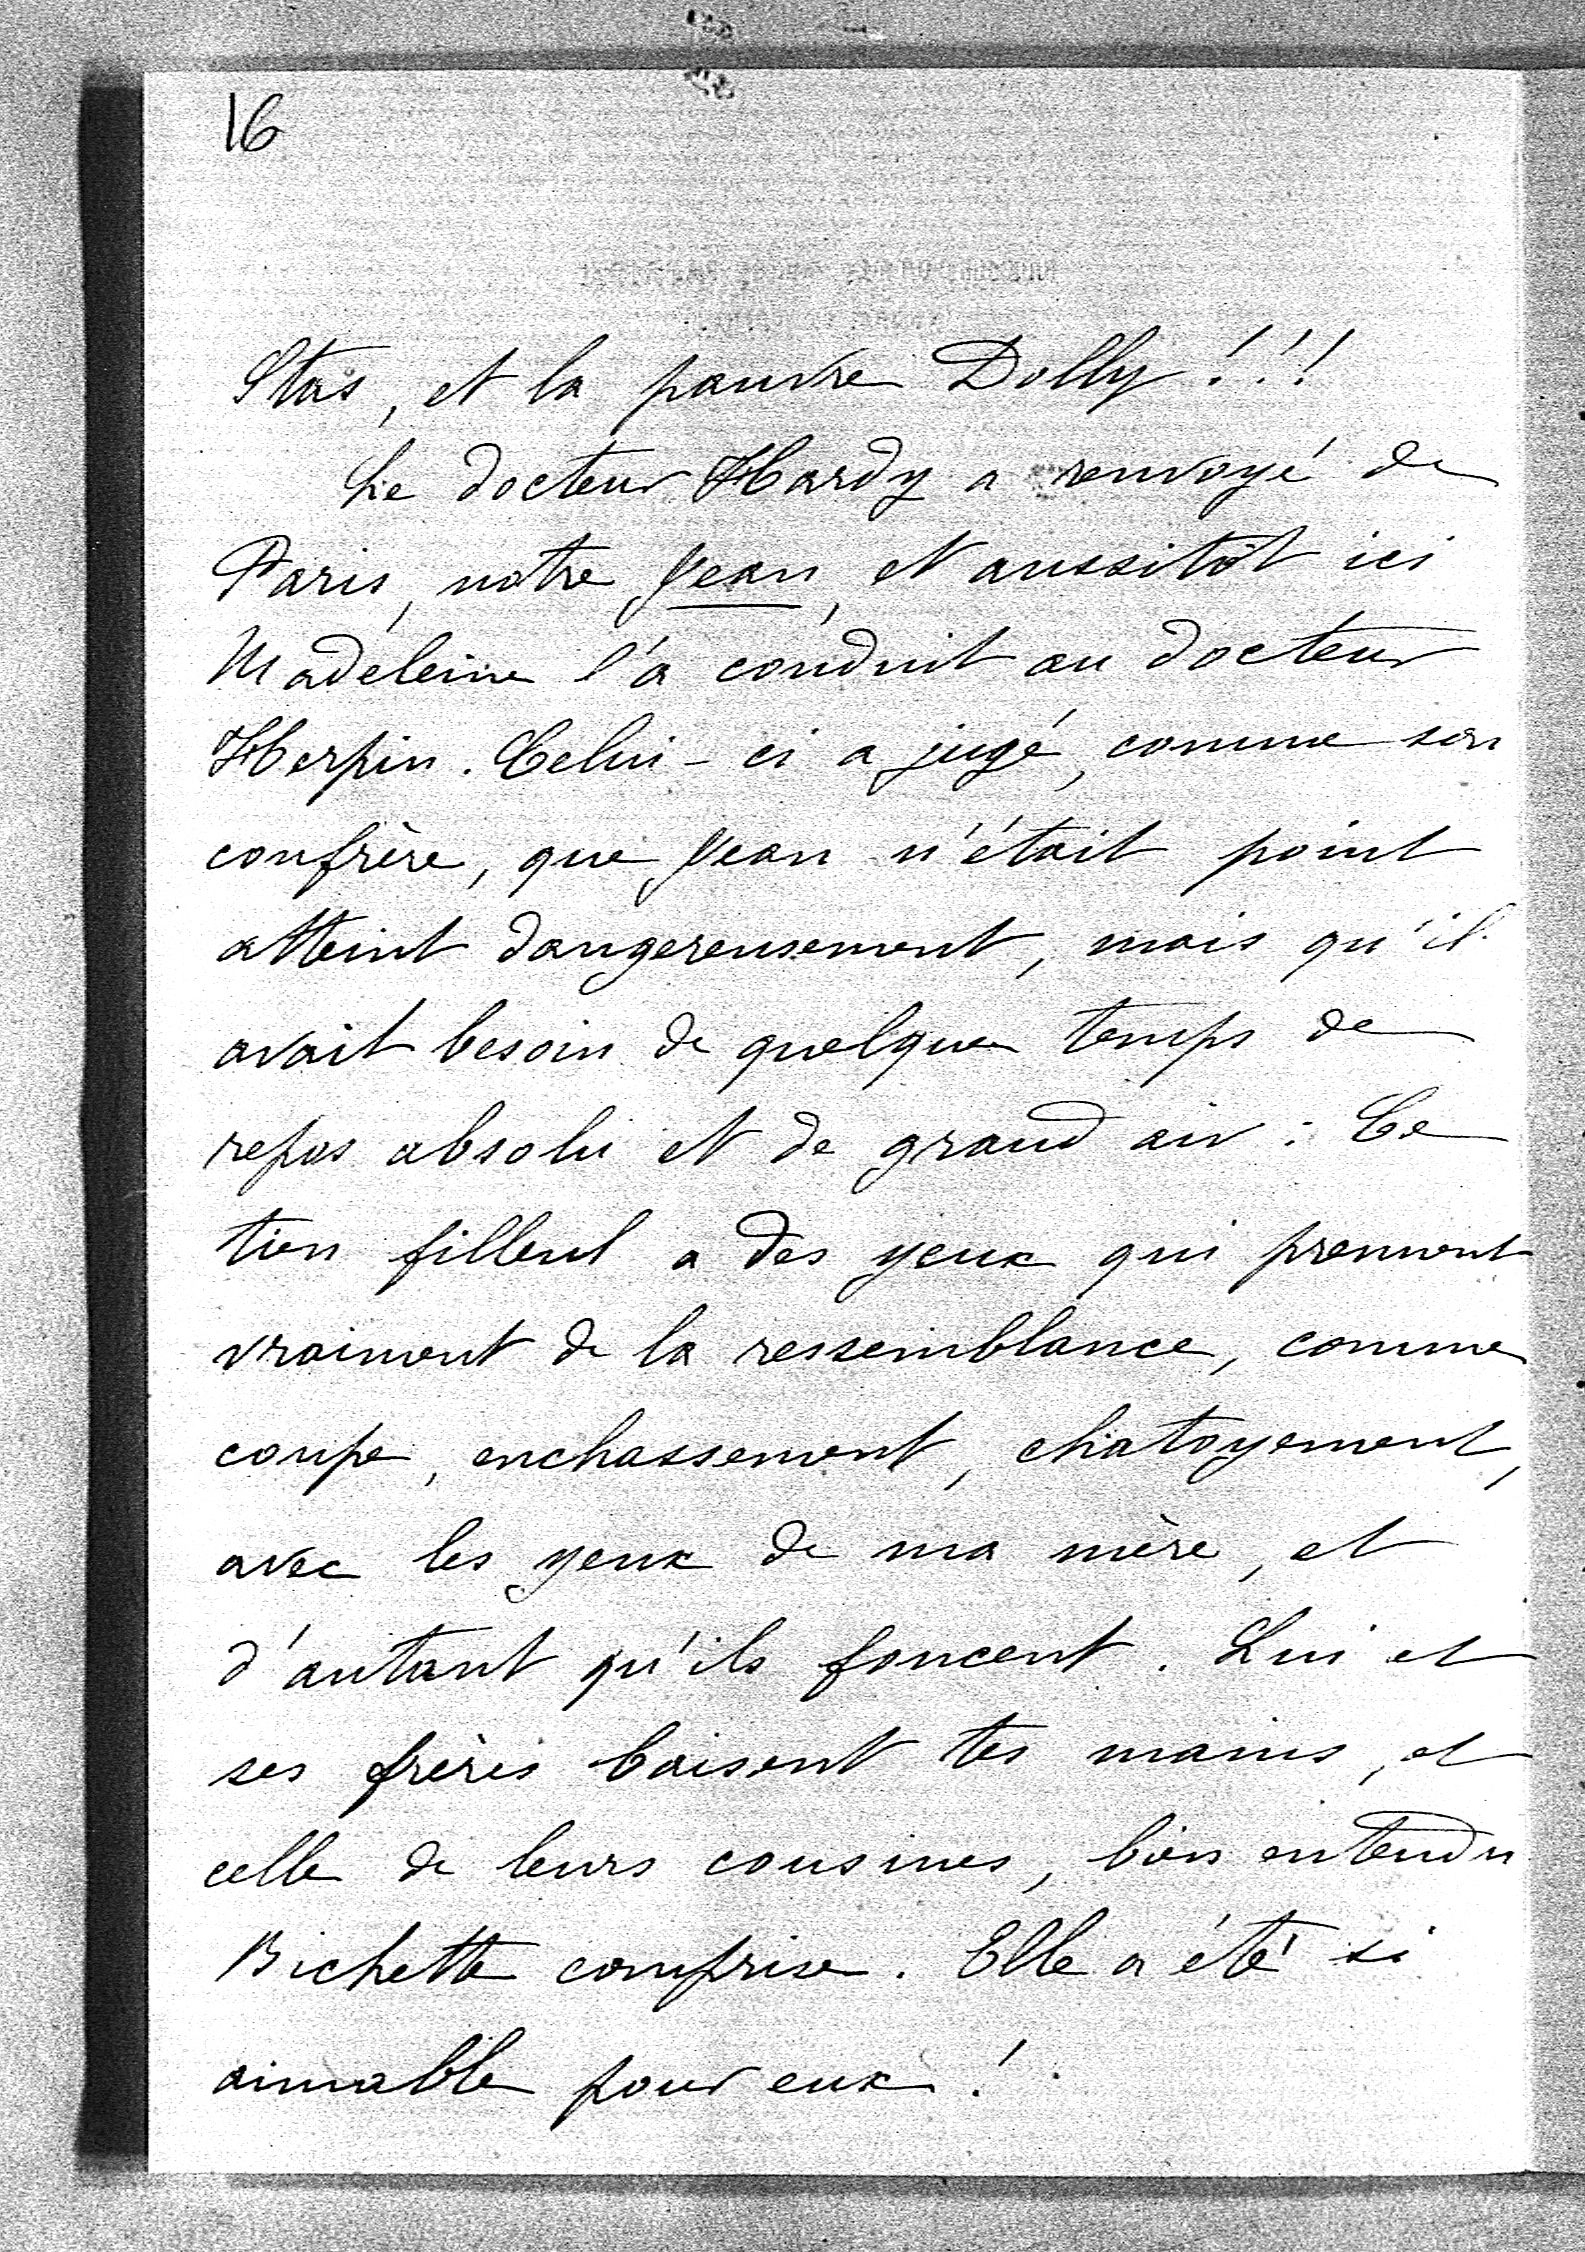 16
Stas, et la pauvre Dolly !!!
Le docteur Hardy a renvoyé de
Paris, notre Jean, et aussitôt ici
Madeleine l'a conduit au docteur
Herpin. Celui-ci a jugé, comme son
confrère, que Jean n'était point
atteint dangereusement, mais qu'il
avait besoin de quelque temps de
repos absolu et de grand air : Ce
tien filleul a des yeux qui prennent
vraiment de la ressemblance, comme
coupe, enchassement, chatoyement,
avec les yeux de ma mère, et
d'autant qu'ils foncent. Lui et
ses frères baisent tes mains, et
celle de leurs cousines, bien entendu
Bichette comprise. Elle a été si
aimable pour eux !